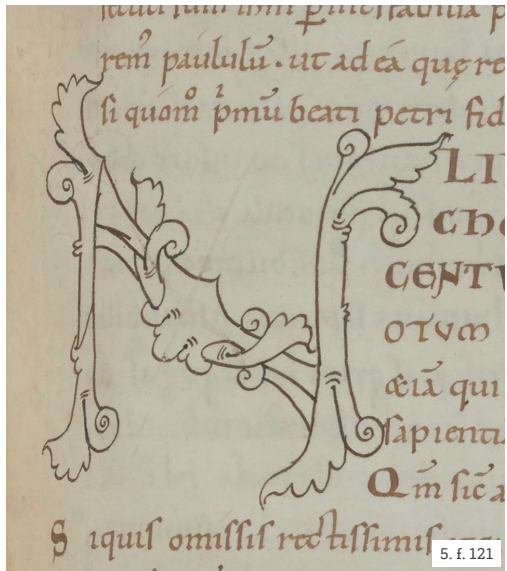 rem̄ paululū · ut ad eá quę re
si quom̊ p̄mū beati petri fid
N LI
CHO
CENTV
OTVM
&iā qui
sapienti
Qm̄ sic̄ a
Siquis omissis rectissimis
5. f. 121